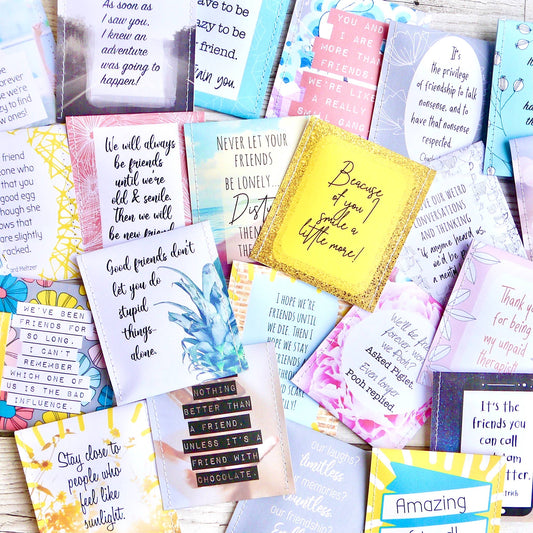 As soon as
I saw you,
I knew an
adventure
was going to
happen!
have to be
azy to be
friend.
ain you.
YOU AND
I ARE
MORE THAN
FRIENDS
WE'RE LIKE
A REALLY
SMALL GANG
It's
the privilege
of friendship to talk
nonsense, and to
have that nonsense
respected.
Charles
erever
we're
zy to find
own!
friend
one who
that you
good egg
though she
ows that
are slightly
racked.
ard Meltzer
We will always
be friends
until we're
old & senile.
Then we will
be new friend
NEVER LET YOUR
FRIENDS
BE LONELY...
THEM
THE
Beacuse
of you I
smile a
little more!
OUR WEIRD
CONVERSATIONS
AND THINKING
if anyone heard us
we'd be
a ment
Good friends don't
let you do
stupid
things...
alone.
I HOPE WE'RE
FRIENDS UNTIL
WE DIE. THEN I
HOPE WE STAY
We'll be friends
forever, won't
we Pooh?
Asked Piglet.
Even longer
Pooh replied.
Thank you
for being
my unpaid
therapist!
WE'VE BEEN
FRIENDS FOR
SO LONG,
I CAN'T
REMEMBER
WHICH ONE OF
US IS THE BAD
INFLUENCE.
NOTHING
BETTER THAN
A FRIEND,
UNLESS IT'S A
FRIEND WITH
CHOCOLATE.
It's the
friends
you can
call
am
tter.
trich
Stay close to
people who
feel like
sunlight.
our laughs?
limitless
our memories?
countless
our friendship?
Amazing